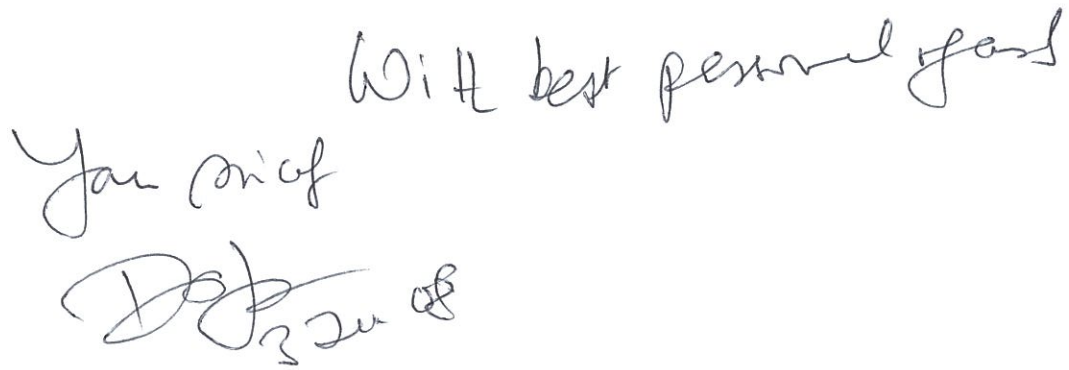 With best personal regards
Yours sincerely
3 Jun 08